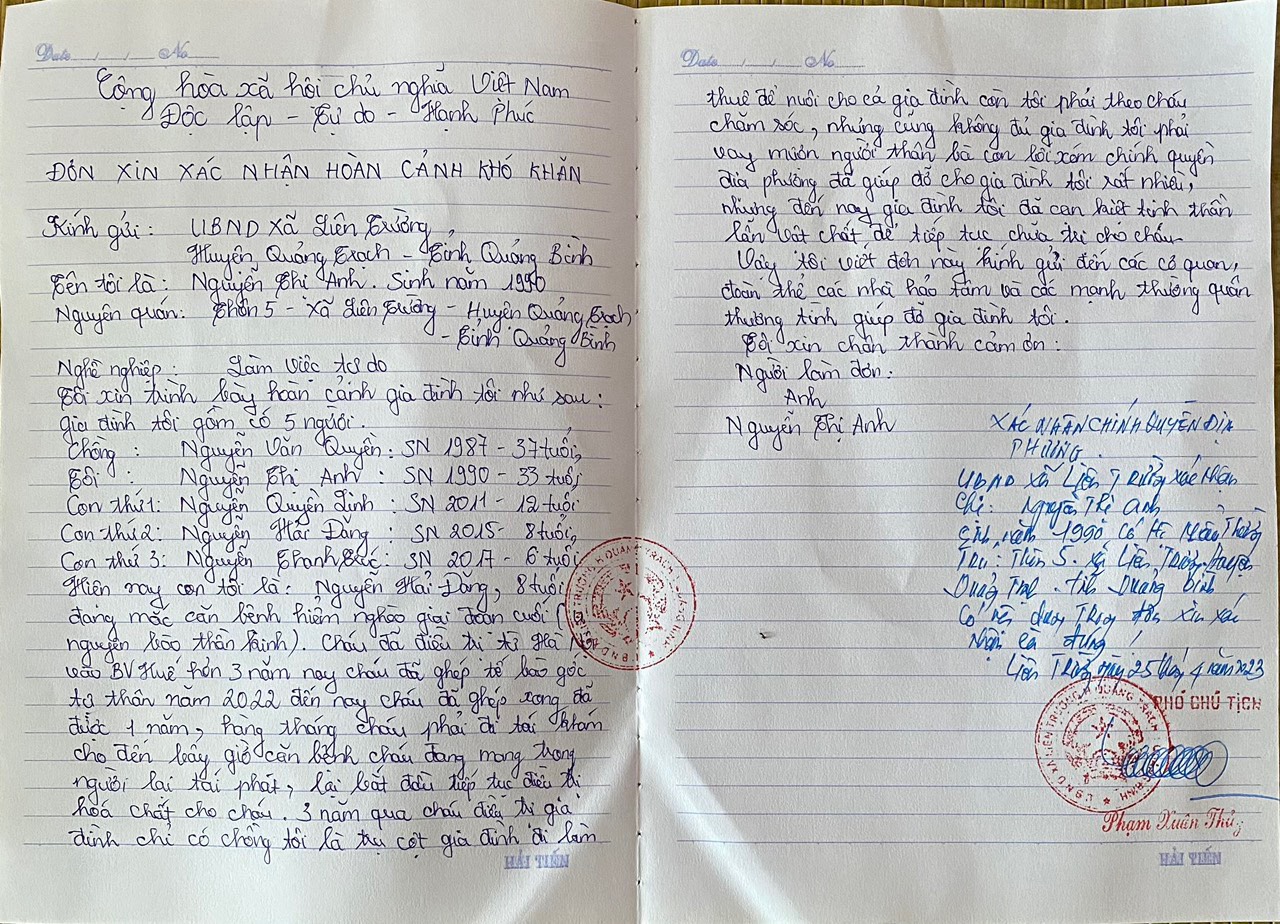 Date / / No
Cộng hòa xã hội chủ nghĩa Việt Nam
Độc lập - Tự do - Hạnh Phúc
ĐƠN XIN XÁC NHẬN HOÀN CẢNH KHÓ KHĂN
Kính gửi: UBND Xã Liên Trường
Huyện Quảng Trạch - Tỉnh Quảng Bình
Tên tôi là: Nguyễn Thị Anh. Sinh năm 1990
Nguyên quán: Thôn 5 - Xã Liên Trường - Huyện Quảng Trạch
- Tỉnh Quảng Bình
Nghề nghiệp: Làm việc tự do
Tôi xin trình bày hoàn cảnh gia đình tôi như sau:
gia đình tôi gồm có 5 người.
Chồng: Nguyễn Văn Quyền: SN 1987 - 37 tuổi,
Tôi: Nguyễn Thị Anh: SN 1990 - 33 tuổi,
Con thứ 1: Nguyễn Quyền Linh: SN 2011 - 12 tuổi
Con thứ 2: Nguyễn Hải Đăng: SN 2015 - 8 tuổi,
Con thứ 3: Nguyễn Thanh Trúc: SN 2017 - 6 tuổi
Hiện nay con tôi là: Nguyễn Hải Đăng, 8 tuổi
đang mắc căn bệnh hiểm nghèo giai đoạn cuối (
nguyên bào thần kinh). Cháu đã điều trị từ Hà Nội
vào BV Huế hơn 3 năm nay cháu đã ghép tế bào gốc
tự thân năm 2022 đến nay cháu đã ghép xong đã
được 1 năm, hàng tháng cháu phải đi tái khám
cho đến bây giờ căn bệnh cháu đang mang trong
người lại tái phát, lại bắt đầu tiếp tục điều trị
hoá chất cho cháu. 3 năm qua cháu điều trị gia
đình chỉ có chồng tôi là trụ cột gia đình đi làm
HẢI TIẾN
Date / / No
thuê để nuôi cho cả gia đình còn tôi phải theo cháu
chăm sóc, nhưng cũng không đủ gia đình tôi phải
vay mượn người thân bà con lối xóm chính quyền
địa phương đã giúp đỡ cho gia đình tôi rất nhiều,
nhưng đến nay gia đình tôi đã cạn kiệt tinh thần
lẫn vật chất để tiếp tục chữa trị cho cháu.
Vậy tôi viết đơn này kính gửi đến các cơ quan,
đoàn thể các nhà hảo tâm và các mạnh thường quân
thương tình giúp đỡ gia đình tôi.
Tôi xin chân thành cảm ơn:
Người làm đơn:
Anh
Nguyễn Thị Anh
XÁC NHẬN CHÍNH QUYỀN ĐỊA
PHƯƠNG.
UBND xã Liên Trường xác nhận
Chị: Nguyễn Thị Anh
Sinh năm 1990 có Hộ khẩu Thường
Trú: Thôn 5. xã Liên Trường, Huyện
Quảng Trạch. tỉnh Quảng Bình
Có nội dung Trong đơn xin xác
Nhận là đúng!
Liên Trường ngày 25 tháng 4 năm 2023
PHÓ CHỦ TỊCH
Phạm Xuân Thủy
HẢI TIẾN